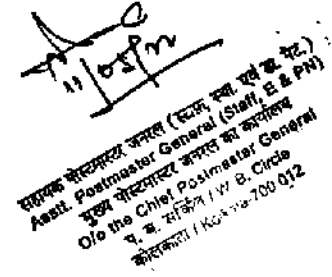 सहायक पोस्टमास्टर जनरल (स्टाफ, स्था. एवं पैट.)
Asstt. Postmaster General (Staff, E & PN)
मुख्य पोस्टमास्टर जनरल का कार्यालय
O/o the Chief Postmaster General
प. बं. सर्किल / W. B. Circle
कोलकाता / Kolkata-700 012